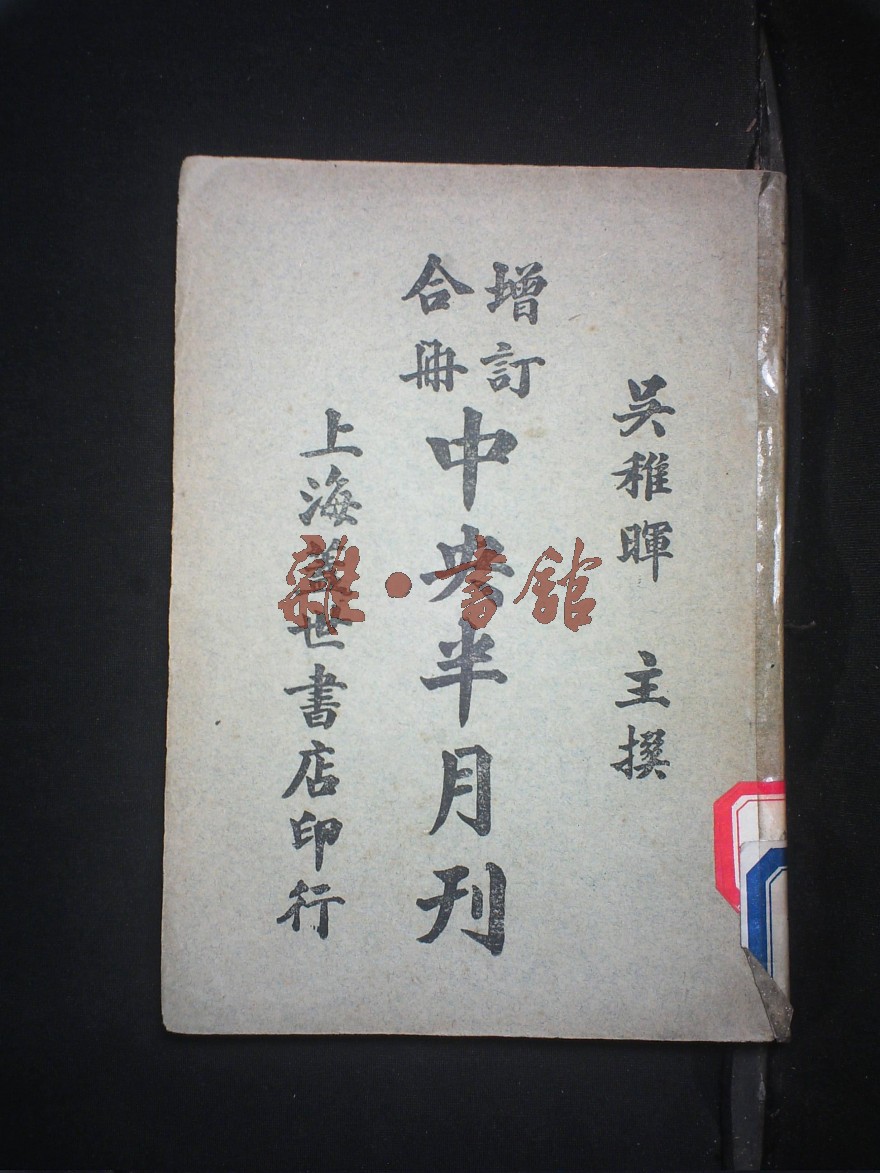 吳稚暉 主撰
增訂
合冊
中央半月刊
上海世書店印行
雜·書館